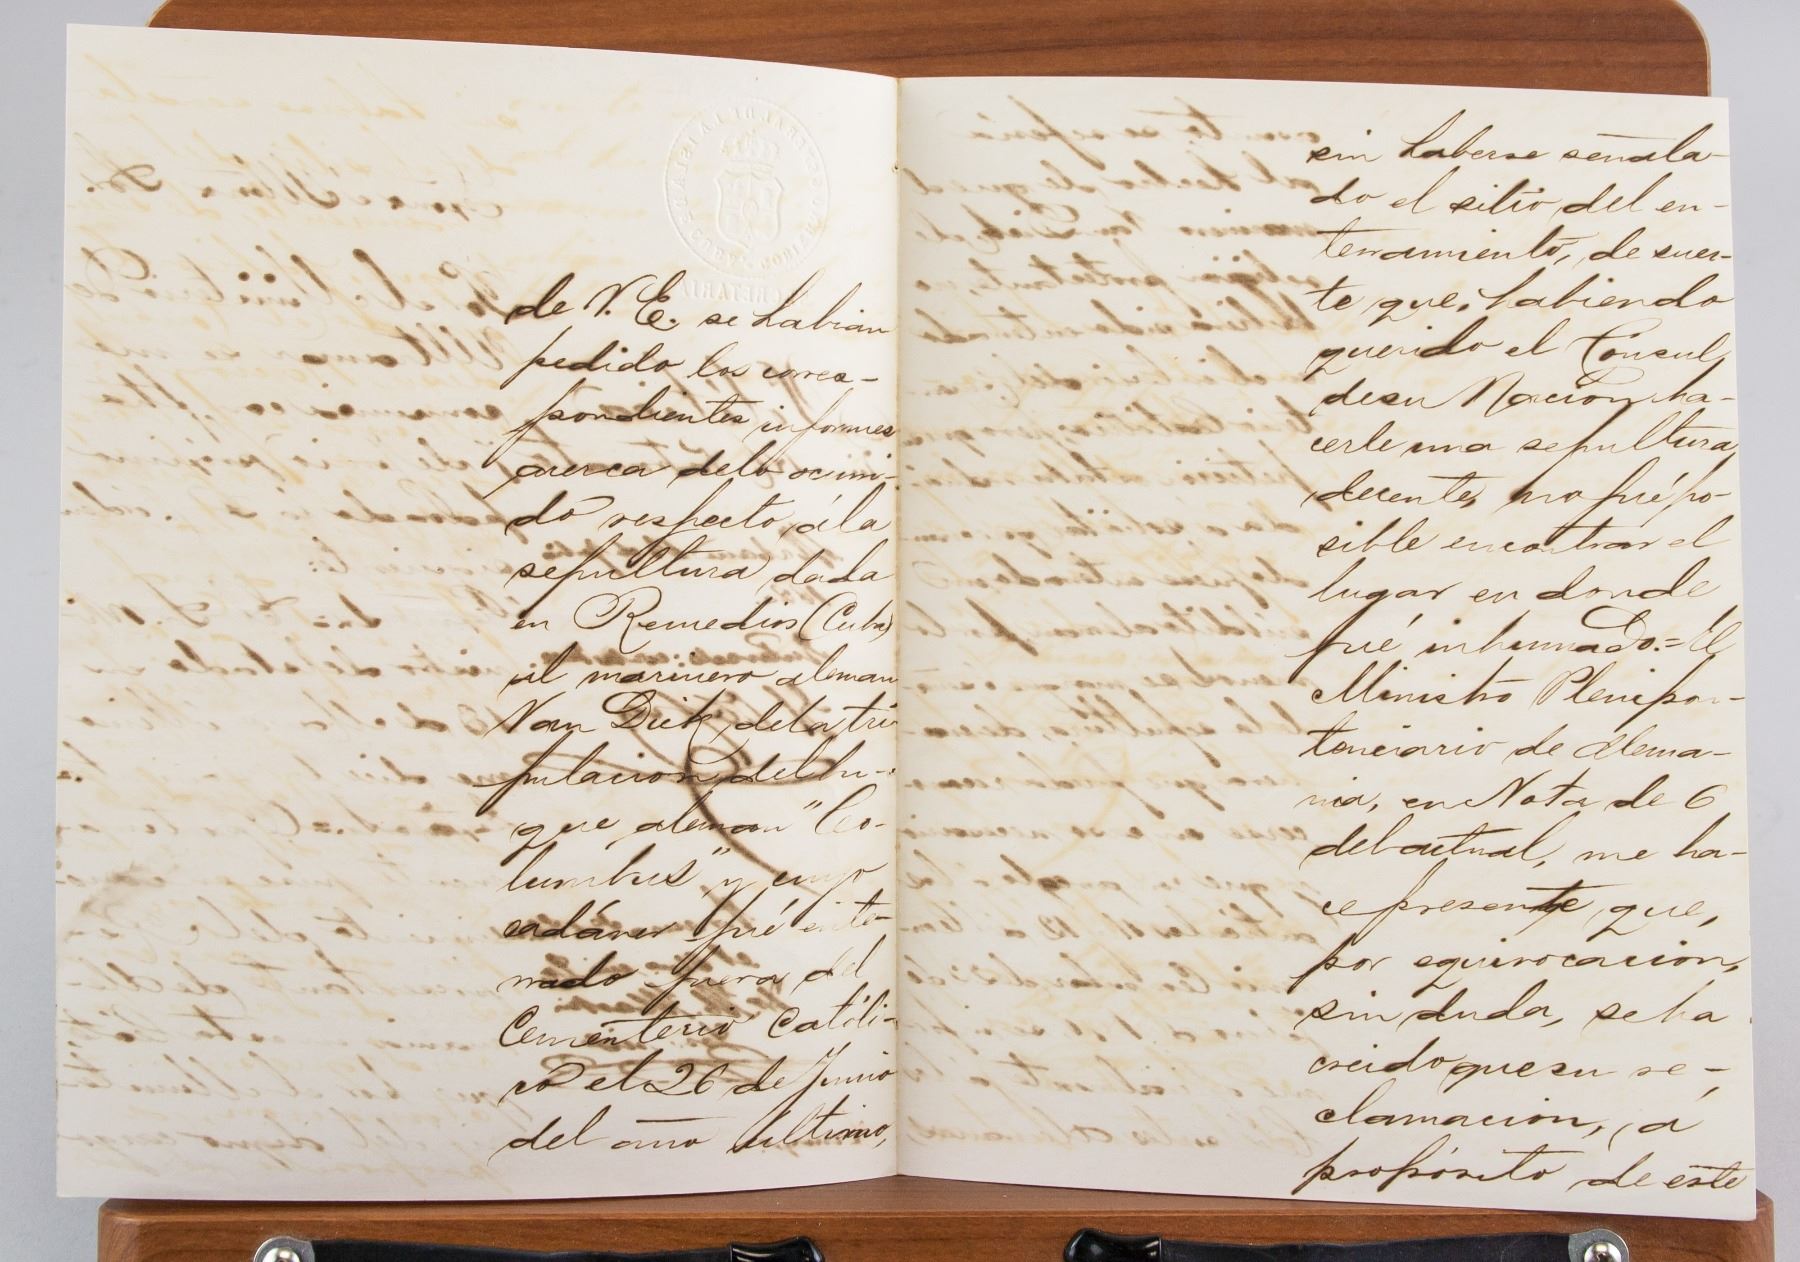 de V. E. se habian
pedido los corres-
pondientes informes
acerca de lo ocurri-
do respecto, á la
sepultura dada
en Remedios (Cuba)
al marinero aleman
Van Dick, de la tri-
pulacion del bu-
que aleman "Co-
lumbus" y cuyo
cadáver fué ente-
rrado fuera del
Cementerio Católi-
co el 26 de Junio
del año ultimo,
sin haberse señala-
do el sitio del en-
terramiento, de suer-
te que, habiendo
querido el Consul
de su Nacion ha-
cerle una sepultura
decente, no fué po-
sible encontrar el
lugar en donde
fué inhumado.= El
Ministro Plenipo-
tenciario de Alema-
nia, en Nota de 6
del actual, me ha-
ce presente que,
por equivocacion,
sin duda, se ha
creido que su re-
clamacion, á
propósito de este